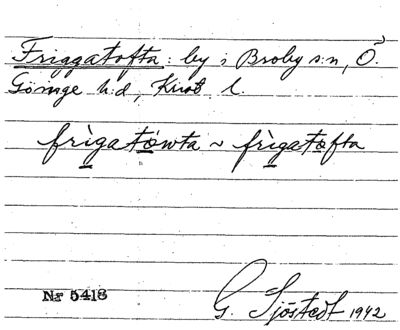 Friggatofta: by i Broby s:n, Ö.
Göinge h:d, Krist l.
frìgatówta ~ frìgatofta
Nr 5418
G. Sjöstedt 1942